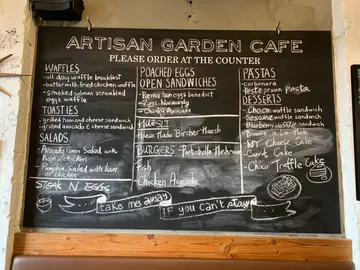 ARTISAN GARDEN CAFE
PLEASE ORDER AT THE COUNTER
WAFFLES
- all day waffle breakfast
- buttermilk fried chicken waffle
- smoked salmon scrambled
eggs waffle
TOASTIES
- grilled ham and cheese sandwich
- grilled avocado & cheese sandwich
SALADS
- Avocado Green Salad with
ham or chicken
- Pumpkin Salad with ham
or chicken
STEAK N EGGS
POACHED EGGS
OPEN SANDWICHES
- eggs benedict
- Eggs Normandy
- Avocado
MUESLI
- House Made Bircher Muesli
BURGERS - Portobello Mushroom
Fish
- Chicken Avocado
PASTAS
- carbonara
- Pesto prawn Pasta
DESSERTS
- Choco waffle sandwich
- Sesame waffle sandwich
- Blueberry waffle sandwich
- Banana a la Mode
- NY Cheese Cake
- Carrot Cake
- Choco Truffle Cake
take me away
IF YOU CAN'T STAY